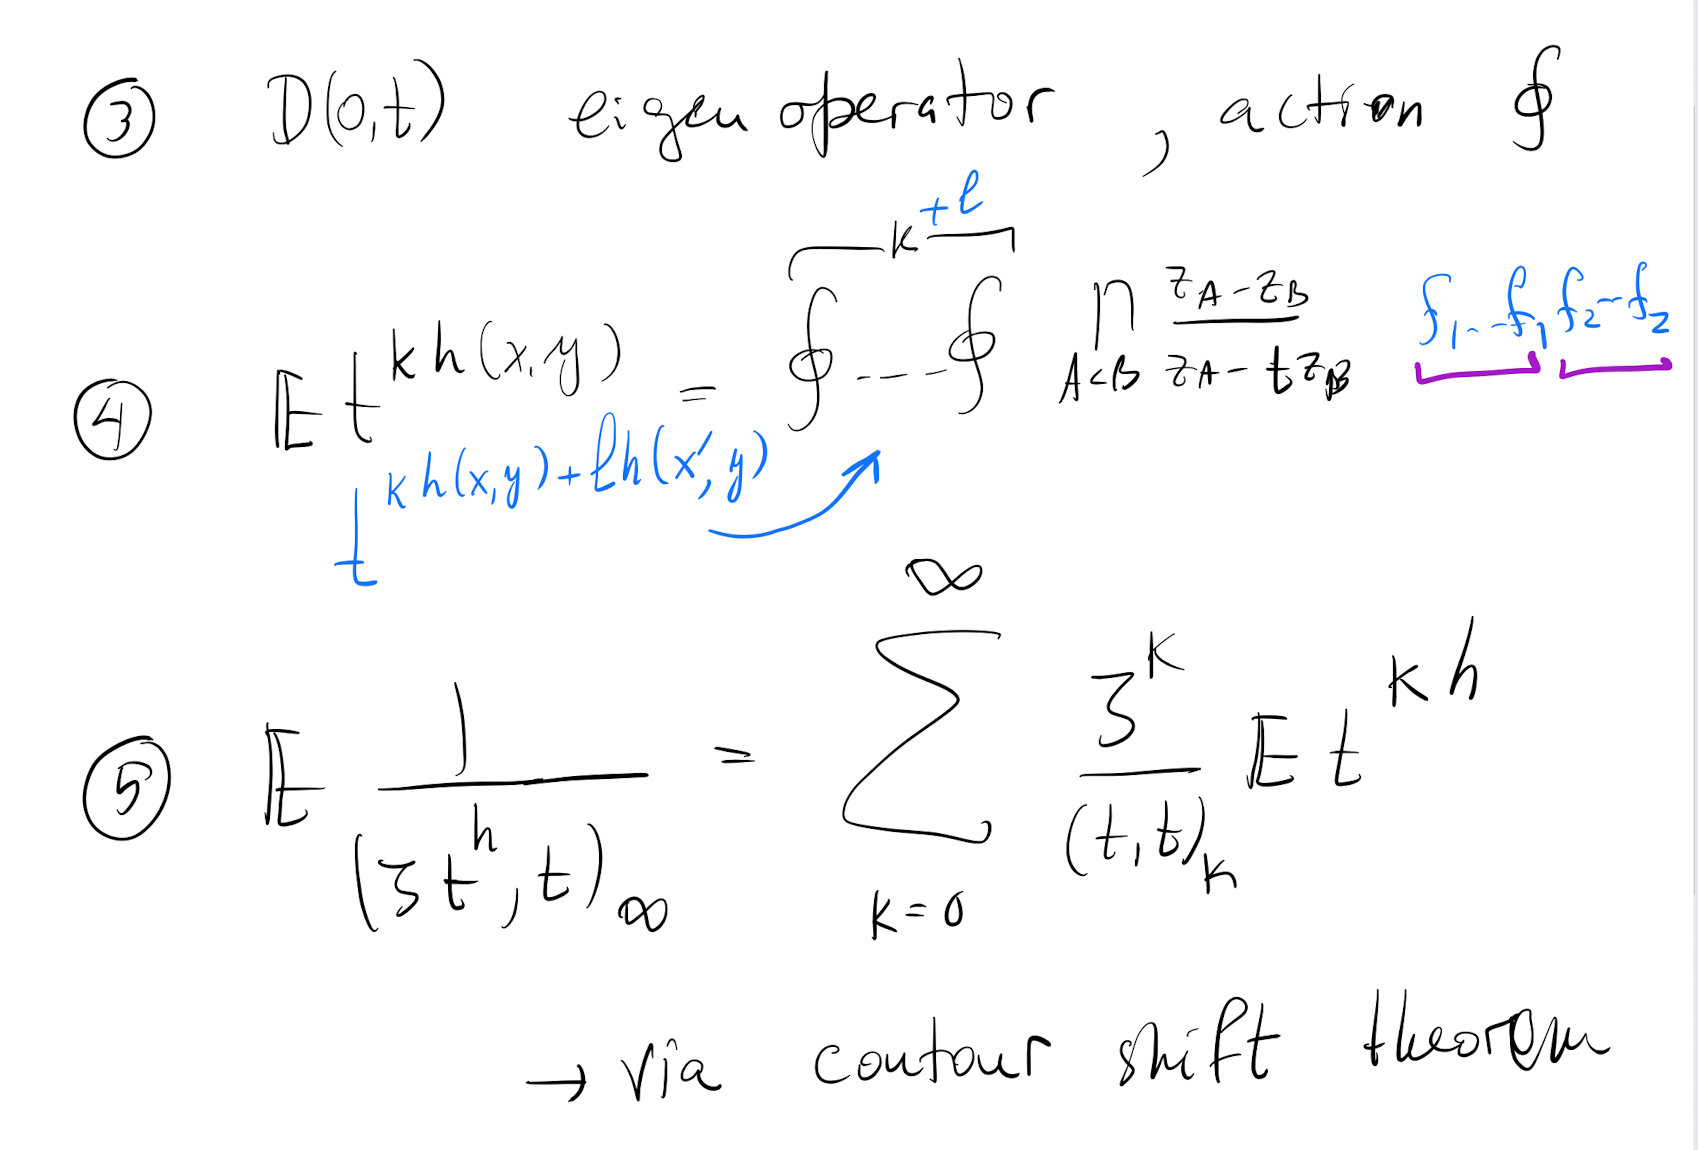 ③ D(0,t) eigenoperator, action ∮
④ 𝔼 t^{k h(x,y)} = ∮---∮ (k+ℓ) ∏_{A<B} \frac{z_A - z_B}{z_A - t z_B} f_1...f_1 f_2--f_2
t^{k h(x,y) + ℓ h(x′,y)}
⑤ 𝔼 \frac{1}{(ζ t^h, t)_∞} = ∑_{k=0}^{∞} \frac{ζ^k}{(t,t)_k} 𝔼 t^{k h}
→ via contour shift theorem